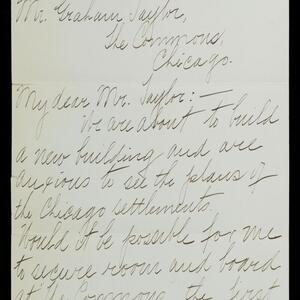 Mr. Graham Taylor,
The Commons,
Chicago.
My dear Mr. Taylor:—
We are about to build
a new building and are
anxious to see the plans of
the Chicago settlements.
Would it be possible for me
to secure room and board
at the Commons the first